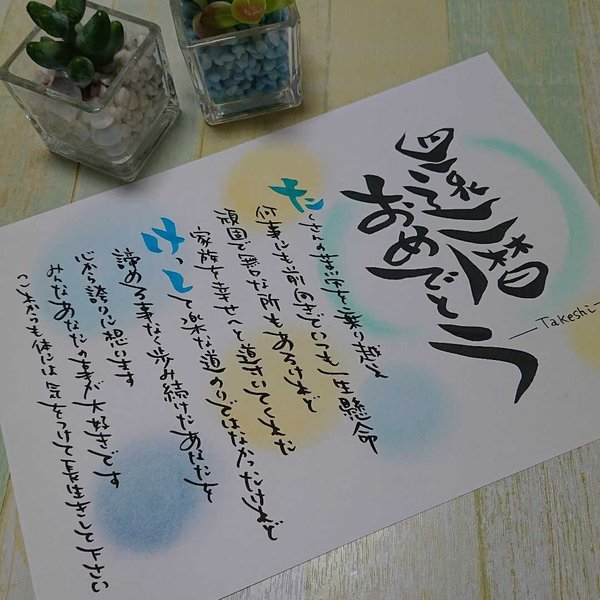 還暦祝
おめでとう
Takeshi
たくさんの苦労を乗り越え
何事にも前向きでいつも一生懸命
頑固で不器な所もあるけれど
家族を幸せへと導いてくれた
けっして楽な道のりではなかったけれど
諦める事なく歩み続けたあなたを
心から誇りに想います
みなあなたの事が大好きです
これからも体には気をつけて長生きして下さい